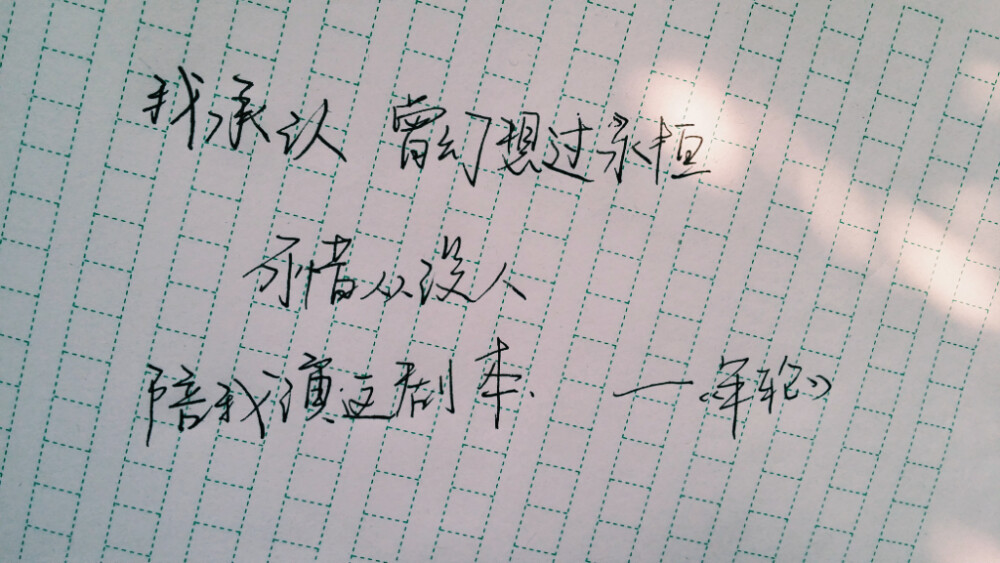 我承认 曾幻想过永恒
可惜从没人
陪我演这剧本. ——《年轮》